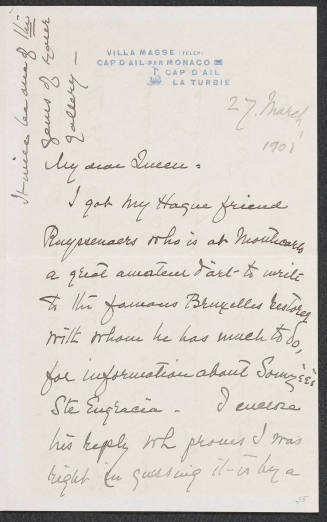 VILLA MASSE (TELEP)
CAP D'AIL PAR MONACO
CAP D'AIL
LA TURBIE
27. March
1901
My dear Queen =
I got my Hague friend
Ruyssenaers who is at Montecarlo
a great amateur d'art - to write
to the famous Bruxelles restorer
with whom he has much to do,
for information about Somzée's
Ste Engracia - I enclose
his reply wh proves I was
right in guessing it is by a
It will be one of the
gems of your
gallery -
35